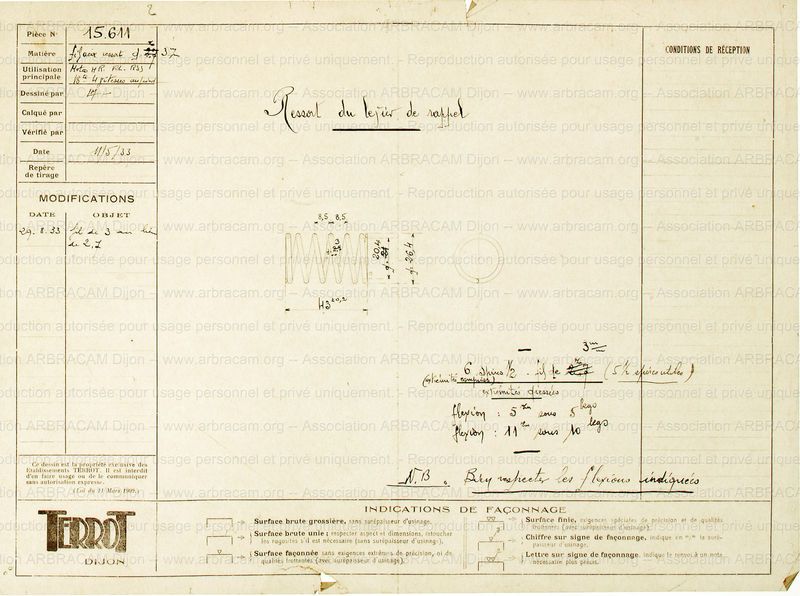 2
Pièce N° 15.611
Matière fil acier ressort
Utilisation principale Motos
Dessiné par
Calqué par
Vérifié par
Date 11/5/33
Repère de tirage
MODIFICATIONS
DATE OBJET
29.8.33 fil de 3 au lieu
de 2,7
Ressort du levier de rappel
CONDITIONS DE RÉCEPTION
8,5 8,5
3
20,4
26,4
43 ±0,2
3 m/m
6 spires 1/2 . fil de (5 1/2 spires utiles)
(extrémités comprises)
extrémités dressées
flexion : 5 m/m sous 5 kegs
flexion : 11 m/m sous 10 kegs
N.B. Bien respecter les flexions indiquées
Ce dessin est la propriété exclusive des
Etablissements TERROT. Il est interdit
d'en faire usage ou de le communiquer
sans autorisation expresse.
(Loi du 11 Mars 1902.)
TERROT
DIJON
INDICATIONS DE FAÇONNAGE
Surface brute grossière, sans surépaisseur d'usinage.
Surface brute unie ; respecter aspect et dimensions, retoucher
les rugosités s'il est nécessaire (sans surépaisseur d'usinage).
Surface façonnée sans exigences extrêmes de précision, ni de
qualités frottantes (avec surépaisseur d'usinage).
Surface finie, exigences spéciales de précision et de qualités
frottantes (avec surépaisseur d'usinage).
Chiffre sur signe de façonnage, indique en m/m la surépaisseur d'usinage.
Lettre sur signe de façonnage, indique le renvoi à une note
nécessaire plus précis.
www.arbracam.org -- Association ARBRACAM Dijon -- www.arbracam.org -- Association ARBRACAM Dijon
Reproduction autorisée pour usage personnel et privé uniquement.